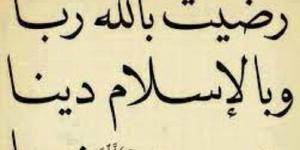 رضيت بالله ربا
وبالإسلام دينا